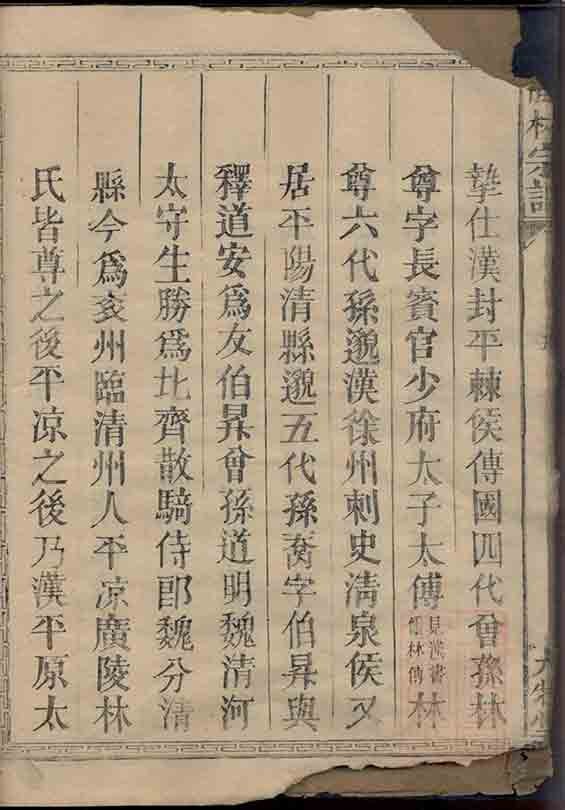 林宗譜
摯仕漢封平棘侯傳國四代曾孫林
尊字長賓官少府太子太傅見漢書儒林傳林
尊六代孫邈漢徐州刺史清泉侯又
居平陽清縣邈五代孫喬字伯昇與
釋道安爲友伯昇曾孫道明魏清河
太守生勝爲北齊散騎侍郎魏分清
縣今爲亥州臨清州人平凉廣陵林
氏皆尊之後平凉之後乃漢平原太